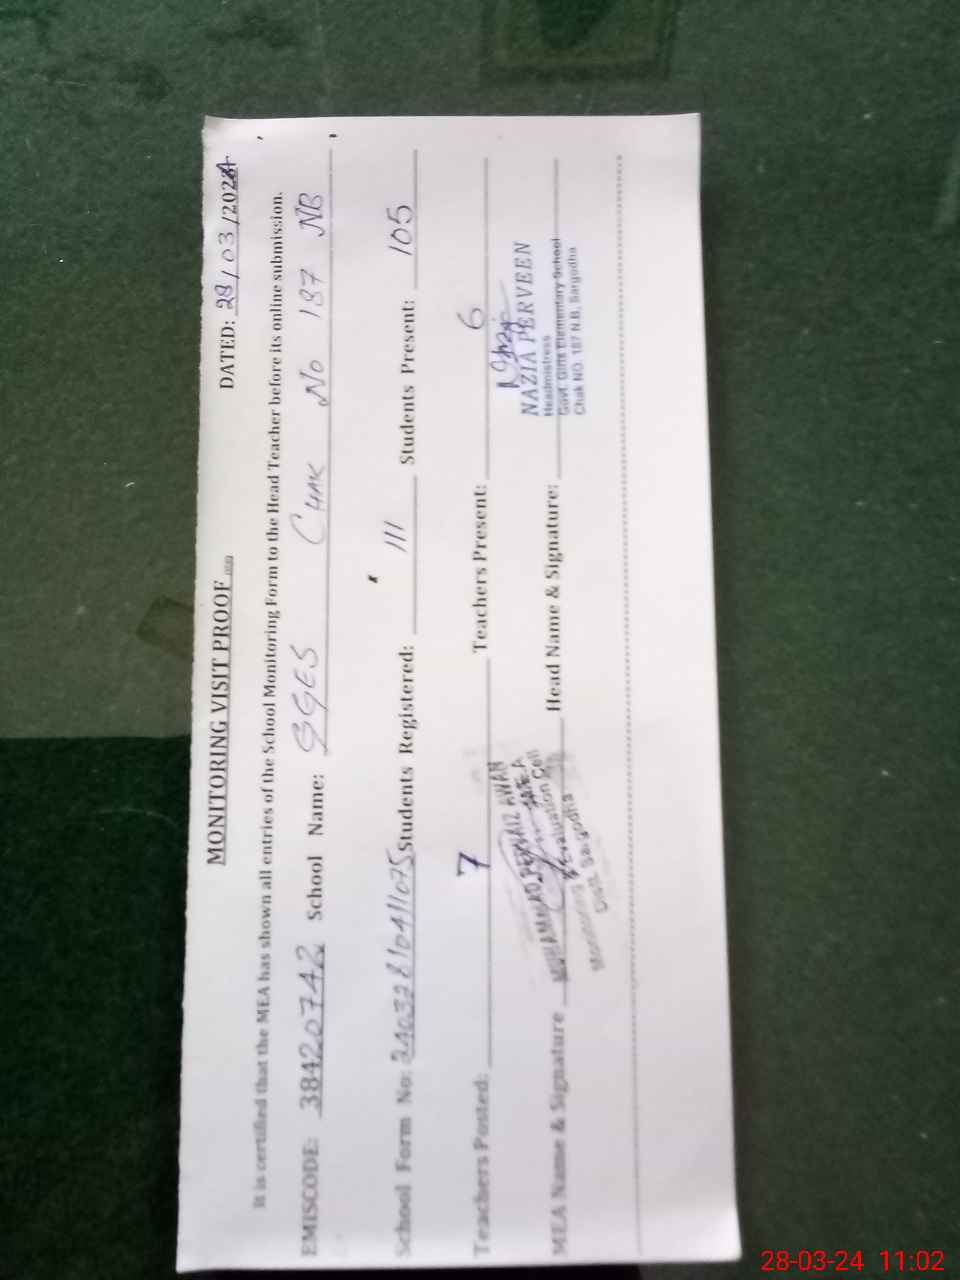 MONITORING VISIT PROOF
DATED: 28/03/2024
It is certified that the MEA has shown all entries of the School Monitoring Form to the Head Teacher before its online submission.
EMISCODE: 38420742 School Name: GGES CHAK No 187 NB
School Form No: 24032810411075 Students Registered: 111 Students Present: 105
Teachers Posted: 7 Teachers Present: 6
MEA Name & Signature Head Name & Signature:
MUHAMMAD PERVAIZ AWAN
MEA
Monitoring & Evaluation Cell
Distt. Sargodha
NAZIA PERVEEN
Headmistress
Govt. Girls Elementary School
Chak NO. 187 N.B. Sargodha
28-03-24 11:02